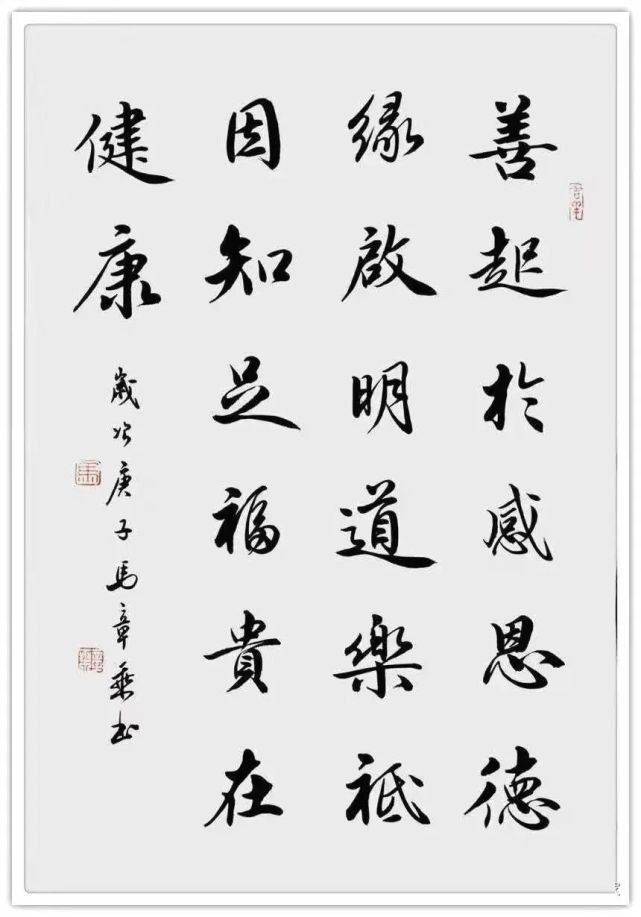 善起於感恩德
緣啟明道樂祗
因知足福貴在
健康
歲次庚子馬章乘書